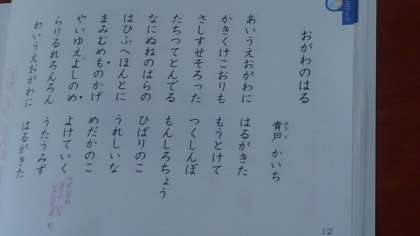 おがわのはる
青戸 かいち
あいうえおがわに はるがきた
かきくけこおりも もうとけて
さしすせそろった つくしんぼ
たちつてとんでる もんしろちょう
なにぬねのはらの ひばりのこ
はひふへほんとに うれしいな
まみむめものかげ めだかのこ
やいゆえよしのめ よけていく
らりるれろんろん うたうみず
わいうえおがわに はるがきた
12